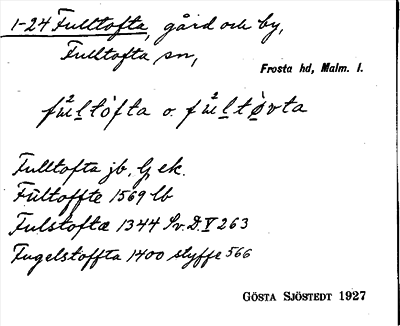 1-24 Fulltofta, gård och by,
Fulltofta sn,
Frosta hd, Malm. l.
fu²ltòfta o. fu²ltòvta
Fulltofta jb, G, ek.
Fultoffte 1569 lb
Fulstofta 1344 Sv. D. V 263
Fugelstoffta 1400 Styffe 566
GÖSTA SJÖSTEDT 1927